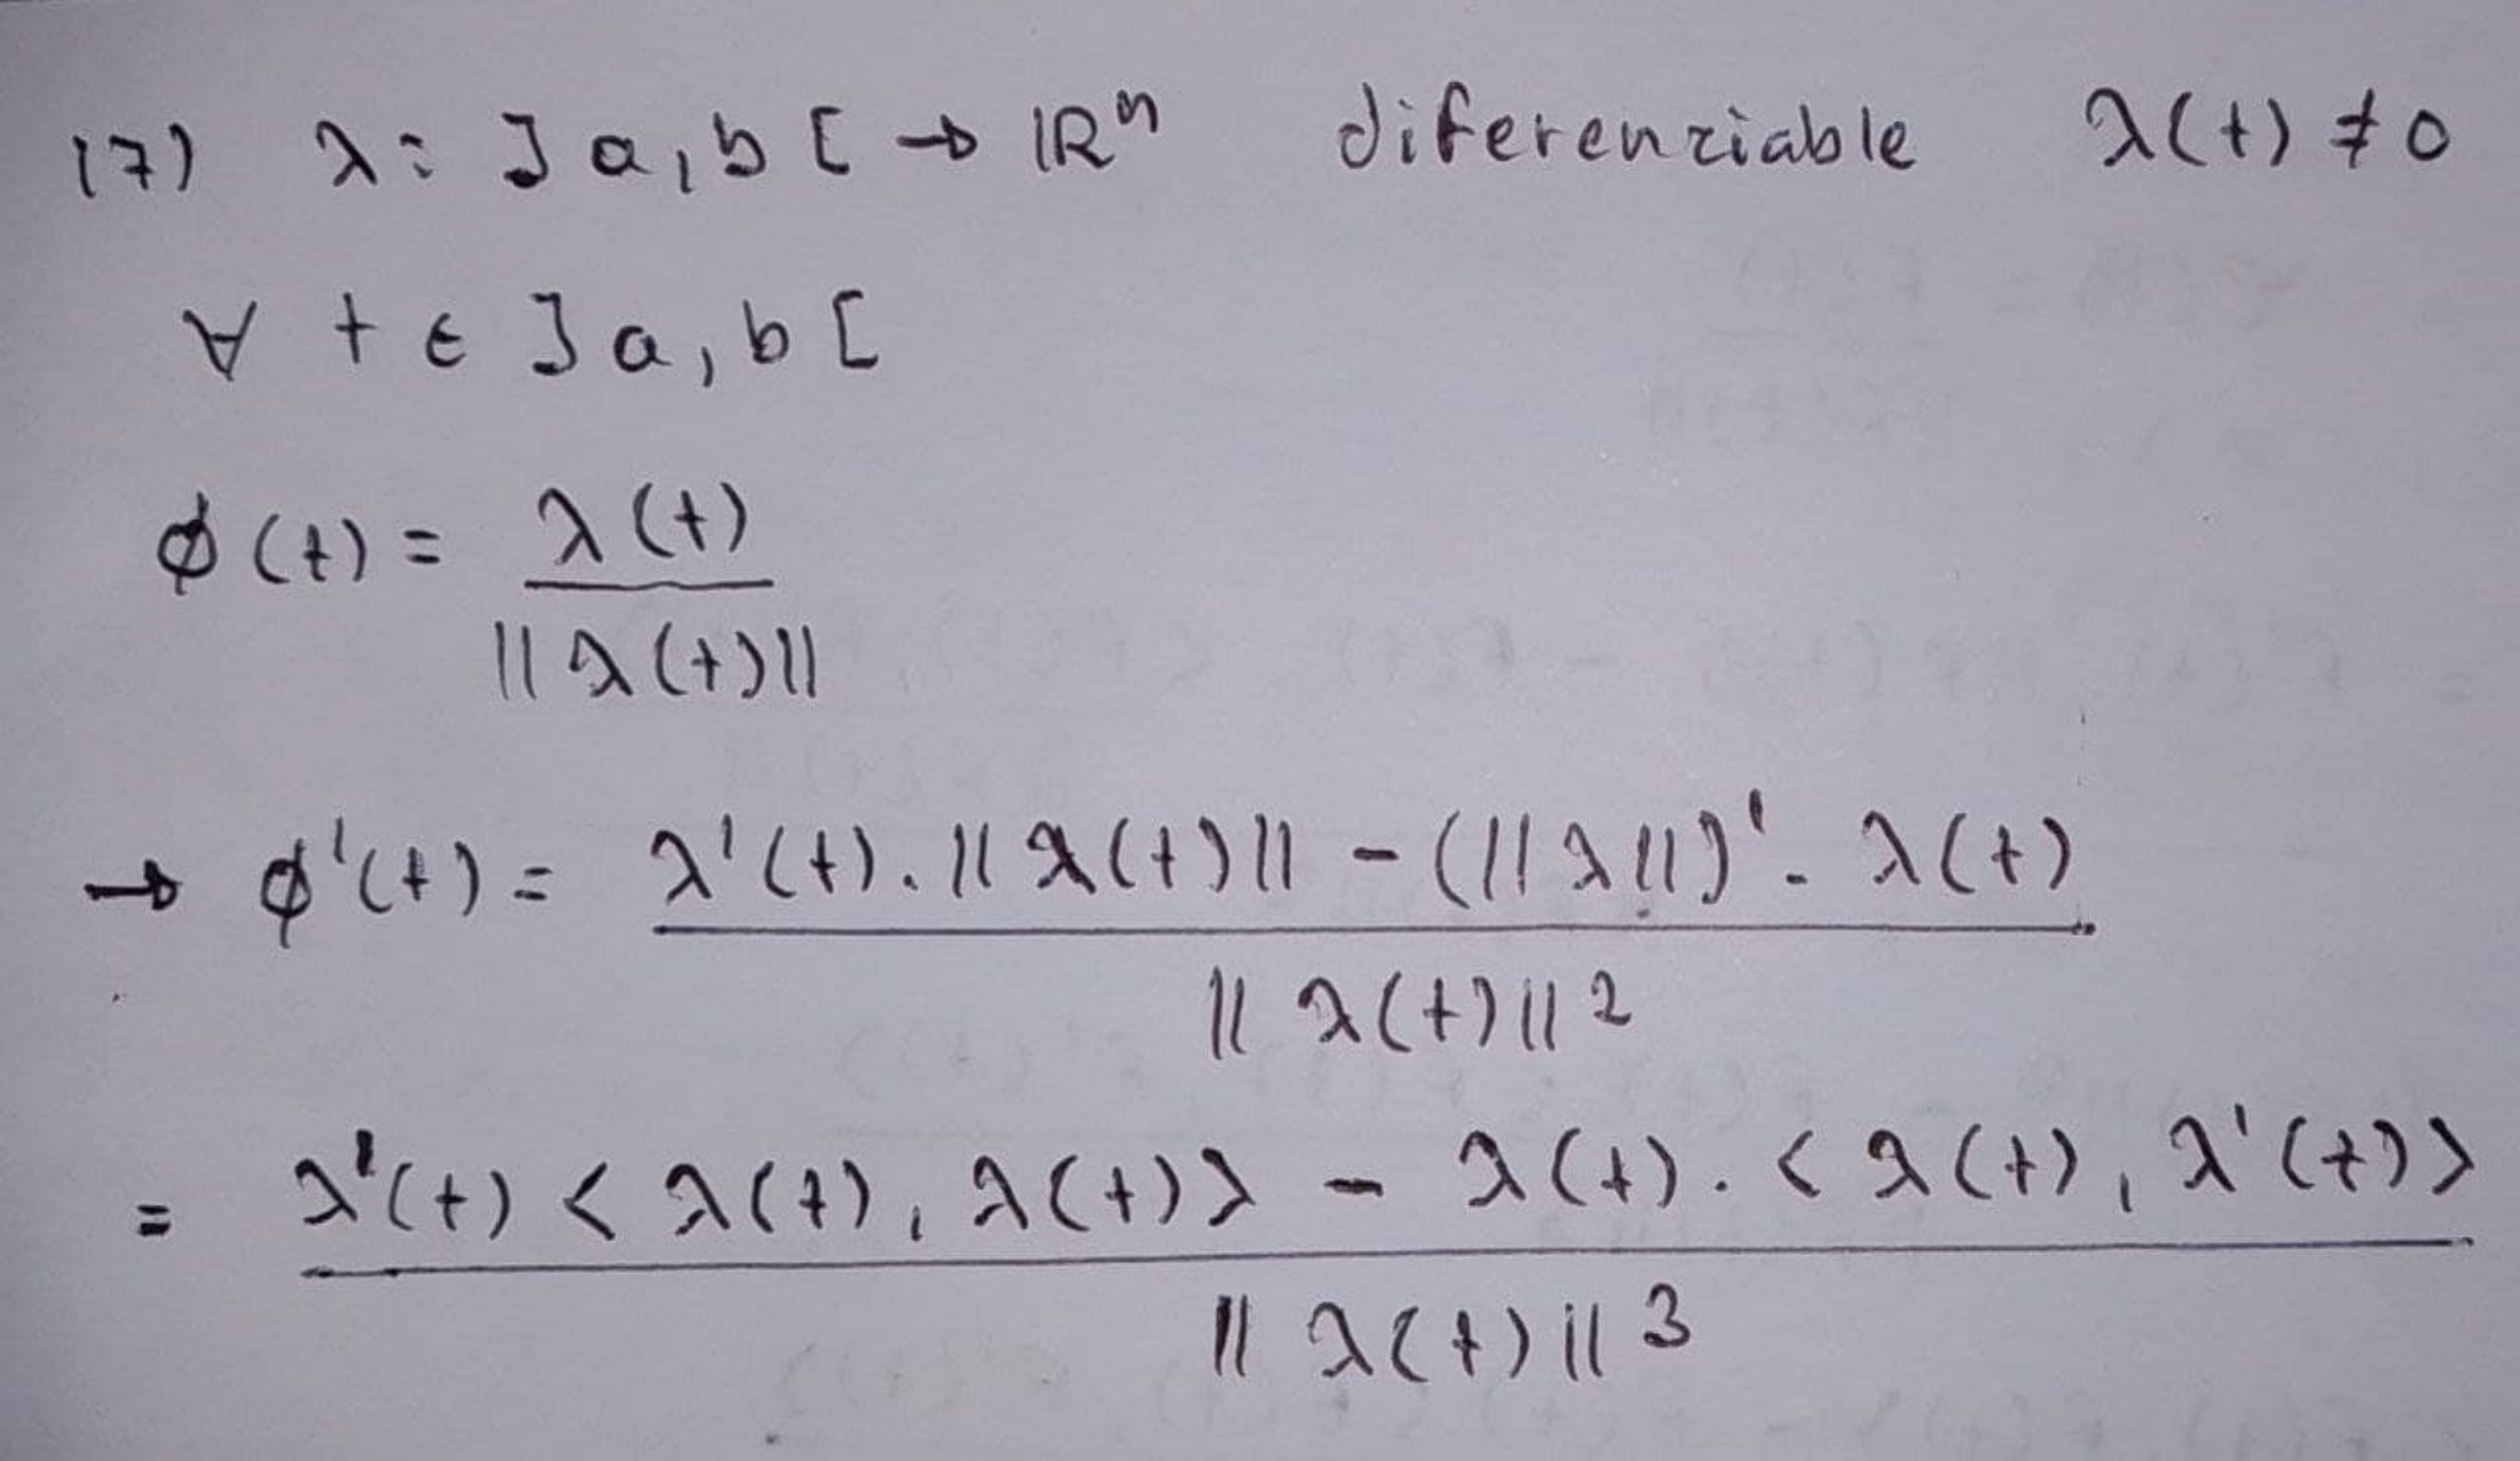 17) λ: ]a,b[ → ℝⁿ diferenziable λ(t) ≠ 0
∀ t ∈ ]a,b[
ϕ(t) = λ(t) / ||λ(t)||
→ ϕ'(t) = λ'(t) . ||λ(t)|| - (||λ||)' . λ(t) / ||λ(t)||²
= λ'(t) < λ(t), λ(t) > - λ(t) . < λ(t), λ'(t) > / ||λ(t)||³